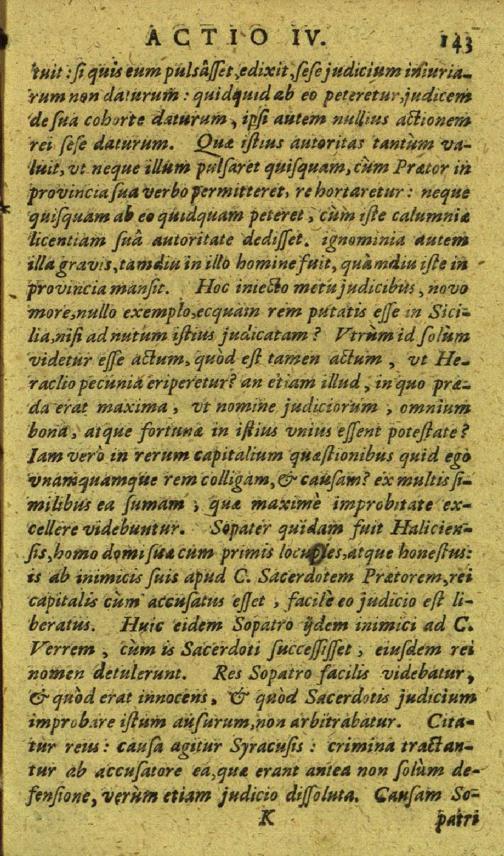 ACTIO IV. 143
tuit: si quis eum pulsâsset, edixit, sese judicium iniuria-
rum non daturum: quidquid ab eo peteretur, judicem
de sua cohorte daturum, ipsi autem nullius actionem
rei sese daturum. Quæ istius autoritas tantùm va-
luit, vt neque illum pulsaret quisquam, cùm Prætor in
provincia sua verbo permitteret, re hortaretur: neque
quisquam ab eo quidquam peteret, cùm iste calumniæ
licentiam suâ autoritate dedisset. ignominia autem
illa gravis, tamdiu in illo homine fuit, quàmdiu iste in
provincia mansit. Hoc iniecto metu judicibus, novo
more, nullo exemplo, ecquam rem putatis esse in Sici-
lia, nisi ad nutum istius judicatam? Vtrùm id solùm
videtur esse actum, quòd est tamen actum, vt He-
raclio pecunia eriperetur? an etiam illud, in quo præ-
da erat maxima, vt nomine judiciorum, omnium
bona, atque fortunæ in istius vnius essent potestate?
Iam verò in rerum capitalium quæstionibus quid ego
vnamquamque rem colligam, & causam? ex multis si-
milibus ea sumam, quæ maximè improbitate ex-
cellere videbuntur. Sopater quidam fuit Halicien-
sis, homo domi suæ cum primis locuples, atque honestus:
is ab inimicis suis apud C. Sacerdotem Prætorem, rei
capitalis cùm accusatus esset, facilè eo judicio est li-
beratus. Huic eidem Sopatro ijdem inimici ad C.
Verrem, cùm is Sacerdoti successisset, eiusdem rei
nomen detulerunt. Res Sopatro facilis videbatur,
& quòd erat innocens, & quòd Sacerdotis judicium
improbare istum ausurum, non arbitrabatur. Cita-
tur reus: causa agitur Syracusis: crimina tractan-
tur ab accusatore ea, quæ erant antea non solùm de-
fensione, verùm etiam judicio dissoluta. Causam So-
K patri